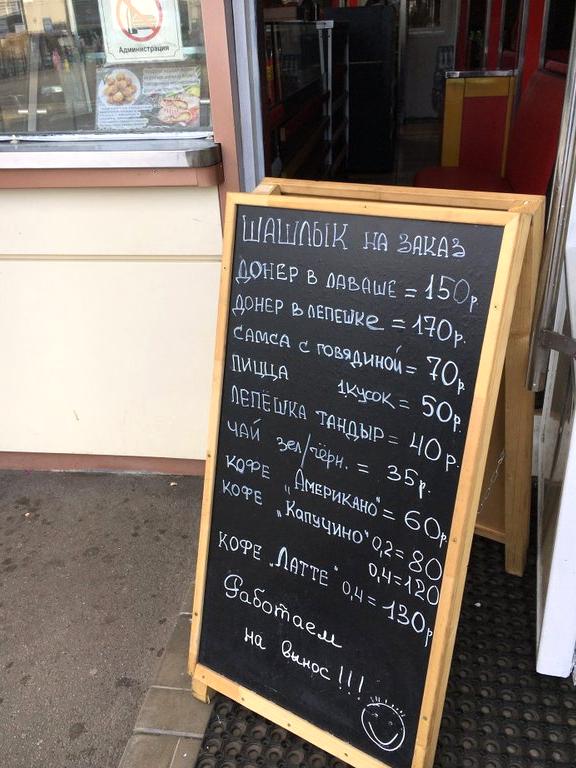 Администрация
ШАШЛЫК НА ЗАКАЗ
ДОНЕР В ЛАВАШЕ = 150р.
ДОНЕР В ЛЕПЕШКЕ = 170р.
САМСА С ГОВЯДИНОЙ = 70р.
ПИЦЦА 1КУСОК = 50р.
ЛЕПЁШКА ТАНДЫР = 40р.
ЧАЙ ЗЕЛ/ЧЁРН. = 35р.
КОФЕ „АМЕРИКАНО" = 60р.
КОФЕ „КАПУЧИНО" 0,2 = 80
0,4 = 120
КОФЕ „ЛАТТЕ" 0,4 = 130р.
Работаем
на вынос!!!